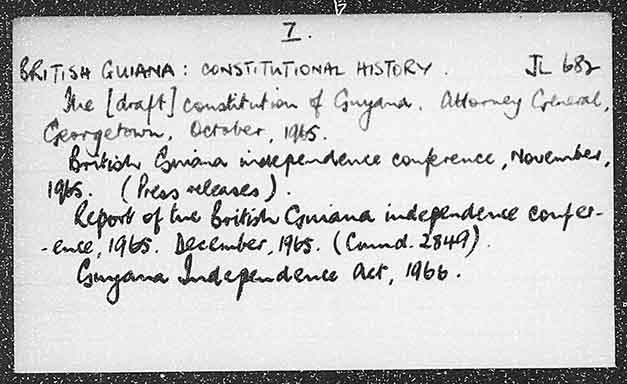 7.
BRITISH GUIANA: CONSTITUTIONAL HISTORY. JL 682
The [draft] constitution of Guyana. Attorney General,
Georgetown, October, 1965.
British Guiana independence conference, November,
1965. (Press releases).
Report of the British Guiana independence confer-
-ence, 1965. December, 1965. (Cmnd. 2849).
Guyana Independence Act, 1966.